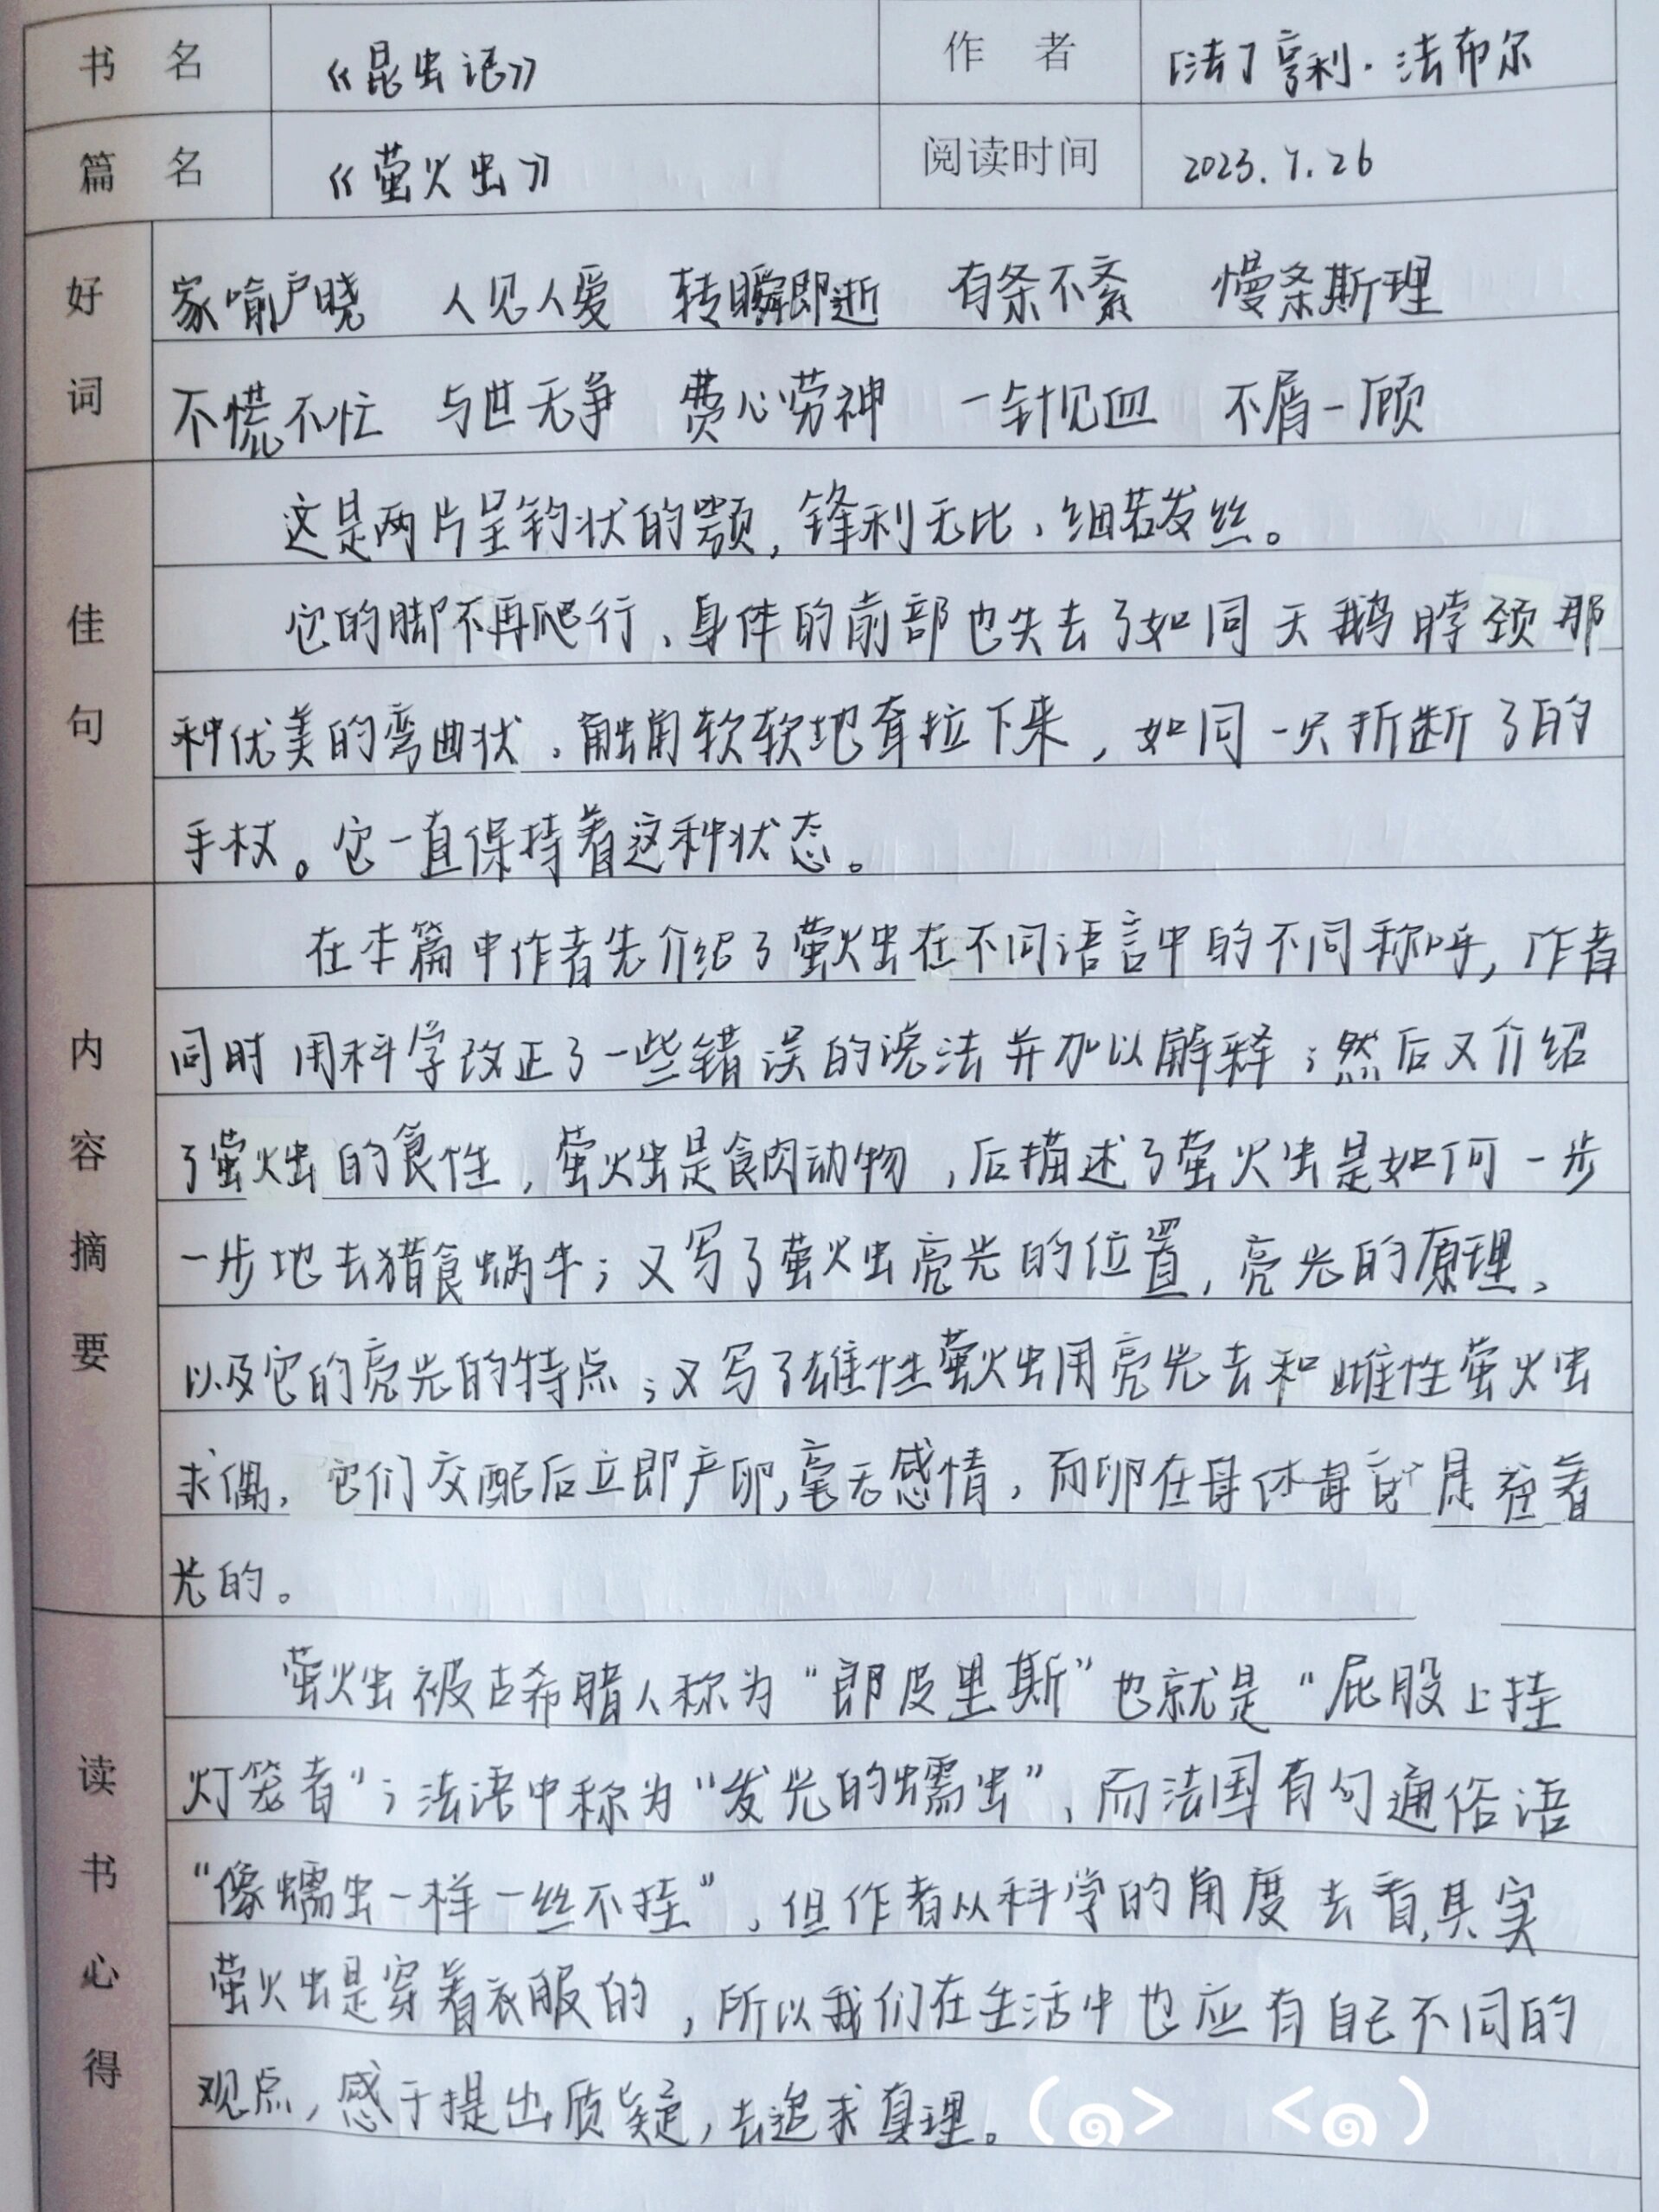 书 名 《昆虫记》 作 者 「法」亨利·法布尔
篇 名 《萤火虫》 阅读时间 2023.7.26
好词
家喻户晓 人见人爱 转瞬即逝 有条不紊 慢条斯理
不慌不忙 与世无争 费心劳神 一针见血 不屑一顾
佳句
这是两片呈钩状的颚,锋利无比、细若发丝。
它的脚不再爬行、身体的前部也失去了如同天鹅脖颈那
种优美的弯曲状、触角软软地耷拉下来,如同一只折断了的
手杖。它一直保持着这种状态。
内容摘要
在本篇中作者先介绍了萤火虫在不同语言中的不同称呼,作者
同时用科学改正了一些错误的说法并加以解释;然后又介绍
了萤火虫的食性,萤火虫是食肉动物,后描述了萤火虫是如何一步
一步地去猎食蜗牛;又写了萤火虫亮光的位置,亮光的原理、
以及它的亮光的特点;又写了雄性萤火虫用亮光去和雌性萤火虫
求偶,它们交配后立即产卵,毫无感情,而卵在母体 是 着
光的。
读书心得
萤火虫被古希腊人称为“郎皮里斯”也就是“屁股上挂
灯笼者”;法语中称为“发光的蠕虫”、而法国有句通俗语
“像蠕虫一样一丝不挂”、但作者从科学的角度去看,其实
萤火虫是穿着衣服的,所以我们在生活中也应有自己不同的
观点,感于提出质疑,去追求真理。(๑> <๑)